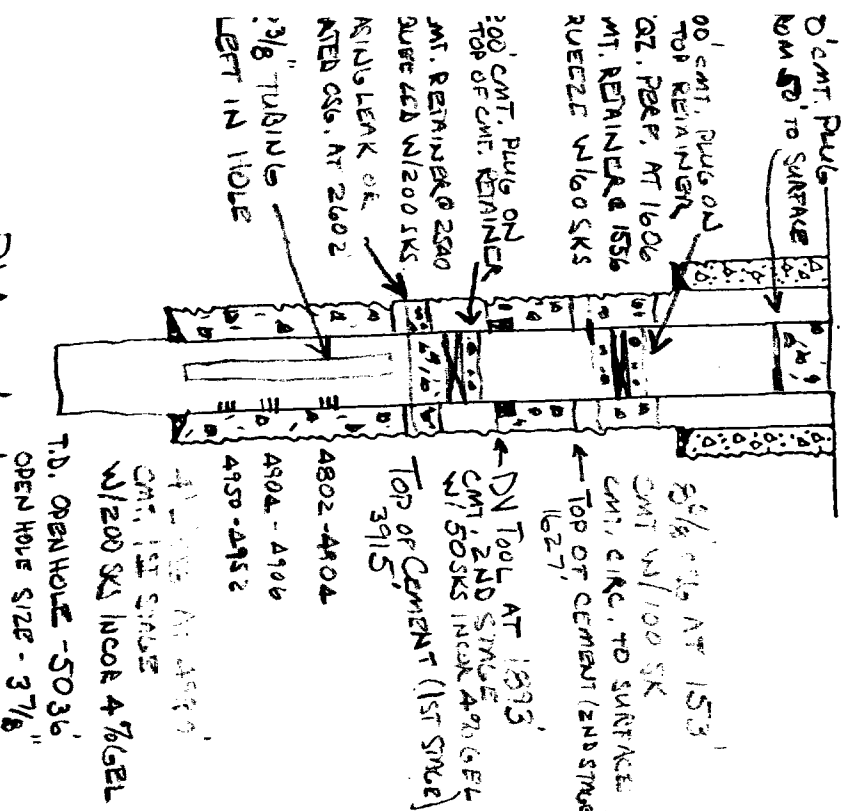 0' CMT. PLUG
50' TO SURFACE
00' CMT. PLUG ON
TOP RETAINER
PERF. AT 1606
MT. RETAINER @ 1556
QUEEZE W/60 SKS
200' CMT. PLUG ON
TOP OF CMT. RETAINER
MT. RETAINER @ 2540
W/200 SKS
ASING LEAK OR
ATED CSG. AT 2602
3/8" TUBING
LEFT IN HOLE
8 5/8" AT 153'
CMT W/100 SK
CMT. CIRC. TO SURFACE
TOP OF CEMENT (2ND STAGE
1627'
DV TOOL AT 1893'
CMT, 2ND STAGE
W/ 50 SKS INCOR 4% GEL
TOP OF CEMENT (1ST STAGE)
3915'
4802-4804
4904-4906
4950-4952
AT
CMT, 1ST STAGE
W/200 SKS INCOR 4% GEL
T.D. OPEN HOLE - 5036'
OPEN HOLE SIZE - 3 7/8"